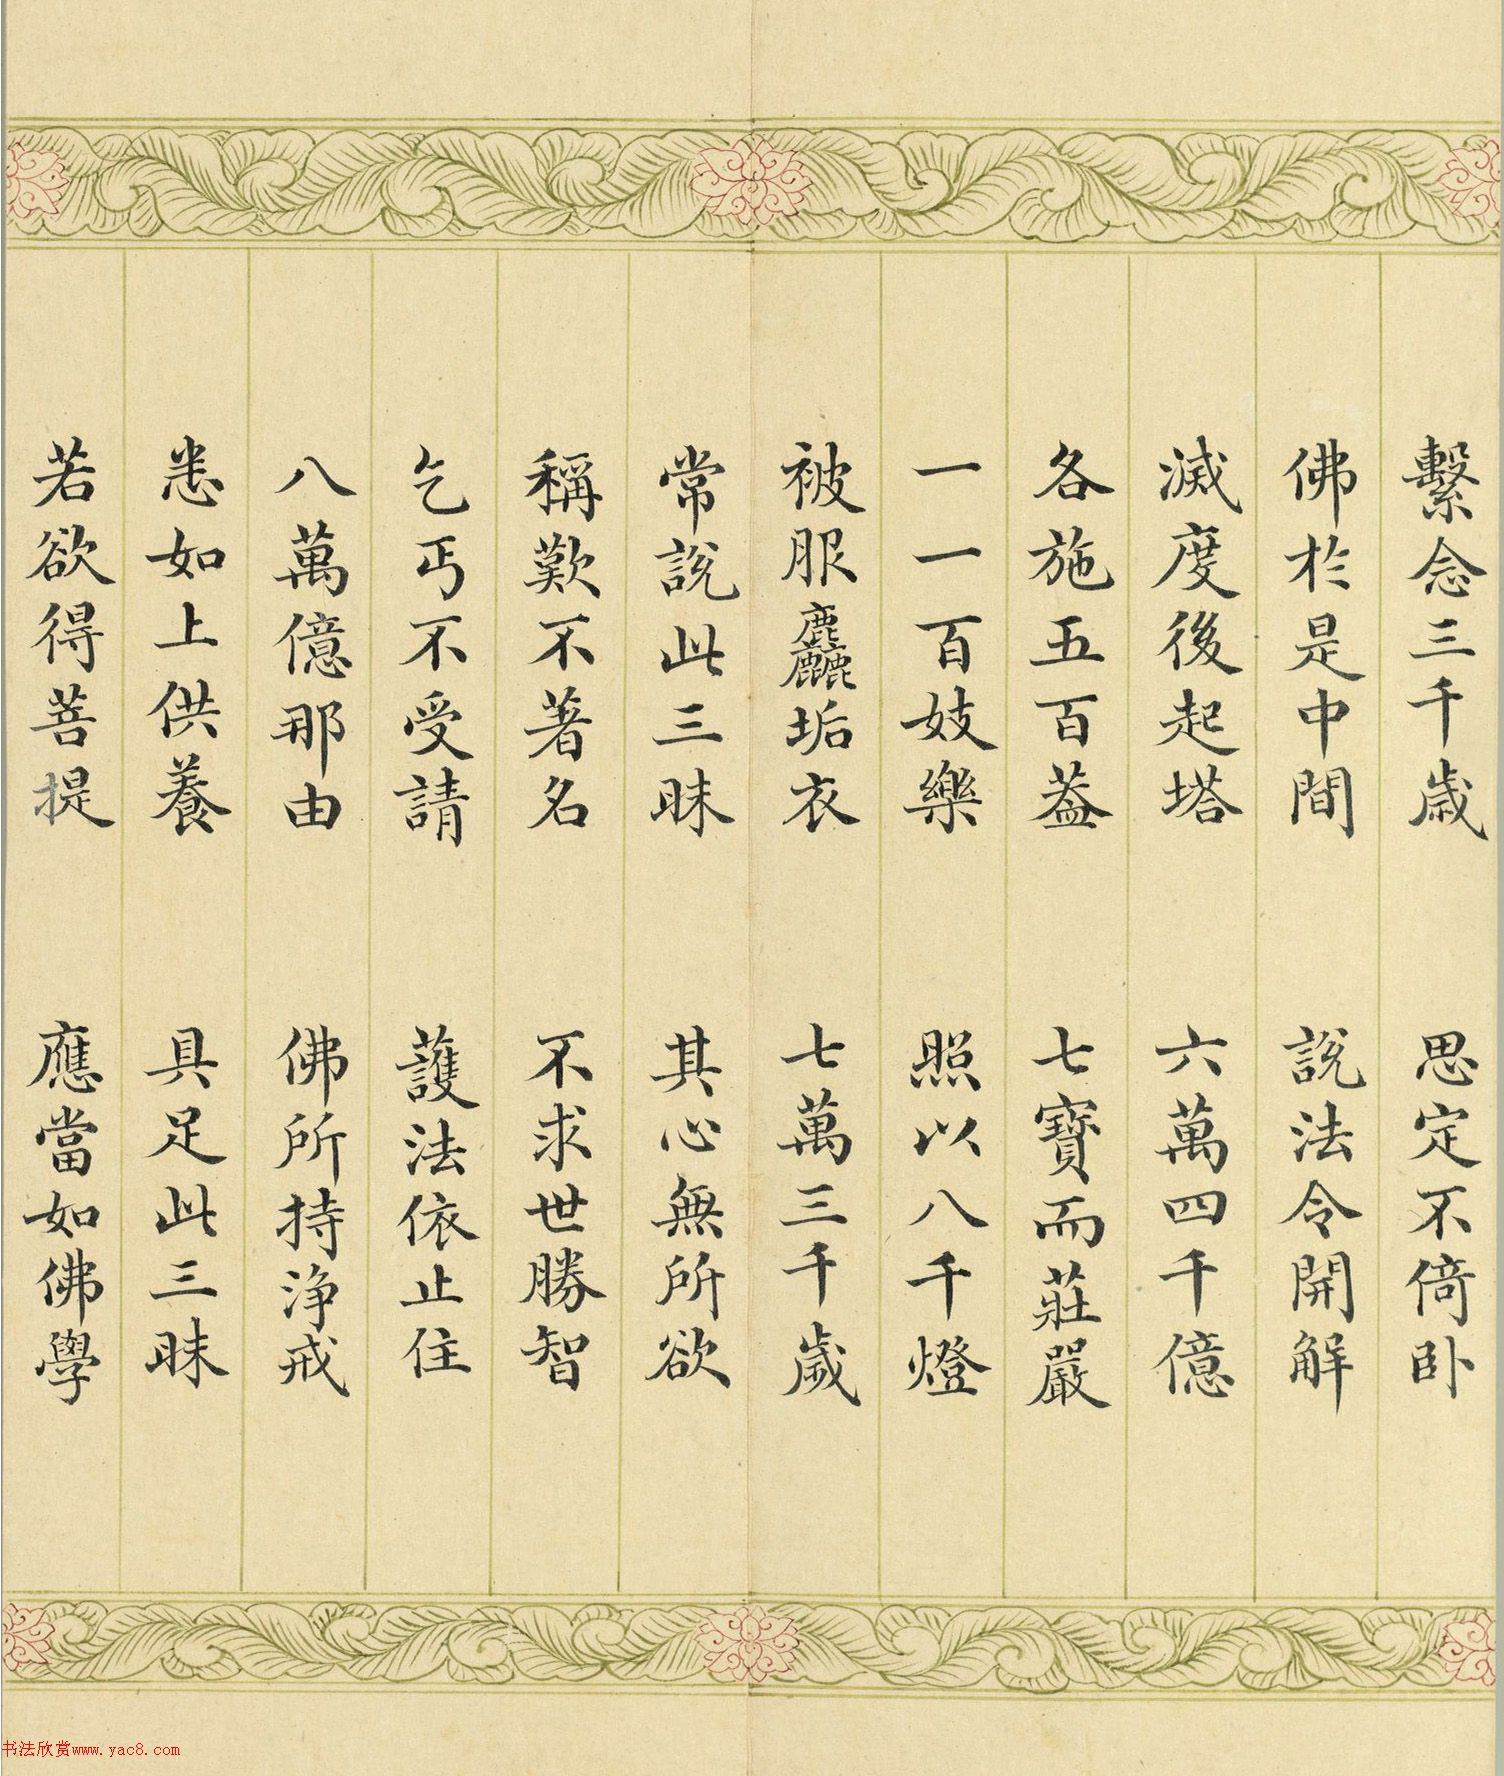 繫念三千歲　思定不倚卧
佛於是中間　說法令開解
滅度後起塔　六萬四千億
各施五百葢　七寶而莊嚴
一一百妓樂　照以八千燈
被服麤垢衣　七萬三千歲
常說此三昧　其心無所欲
稱歎不著名　不求世勝智
乞丐不受請　護法依止住
八萬億那由　佛所持淨戒
悉如上供養　具足此三昧
若欲得菩提　應當如佛學
书法欣赏www.yac8.com